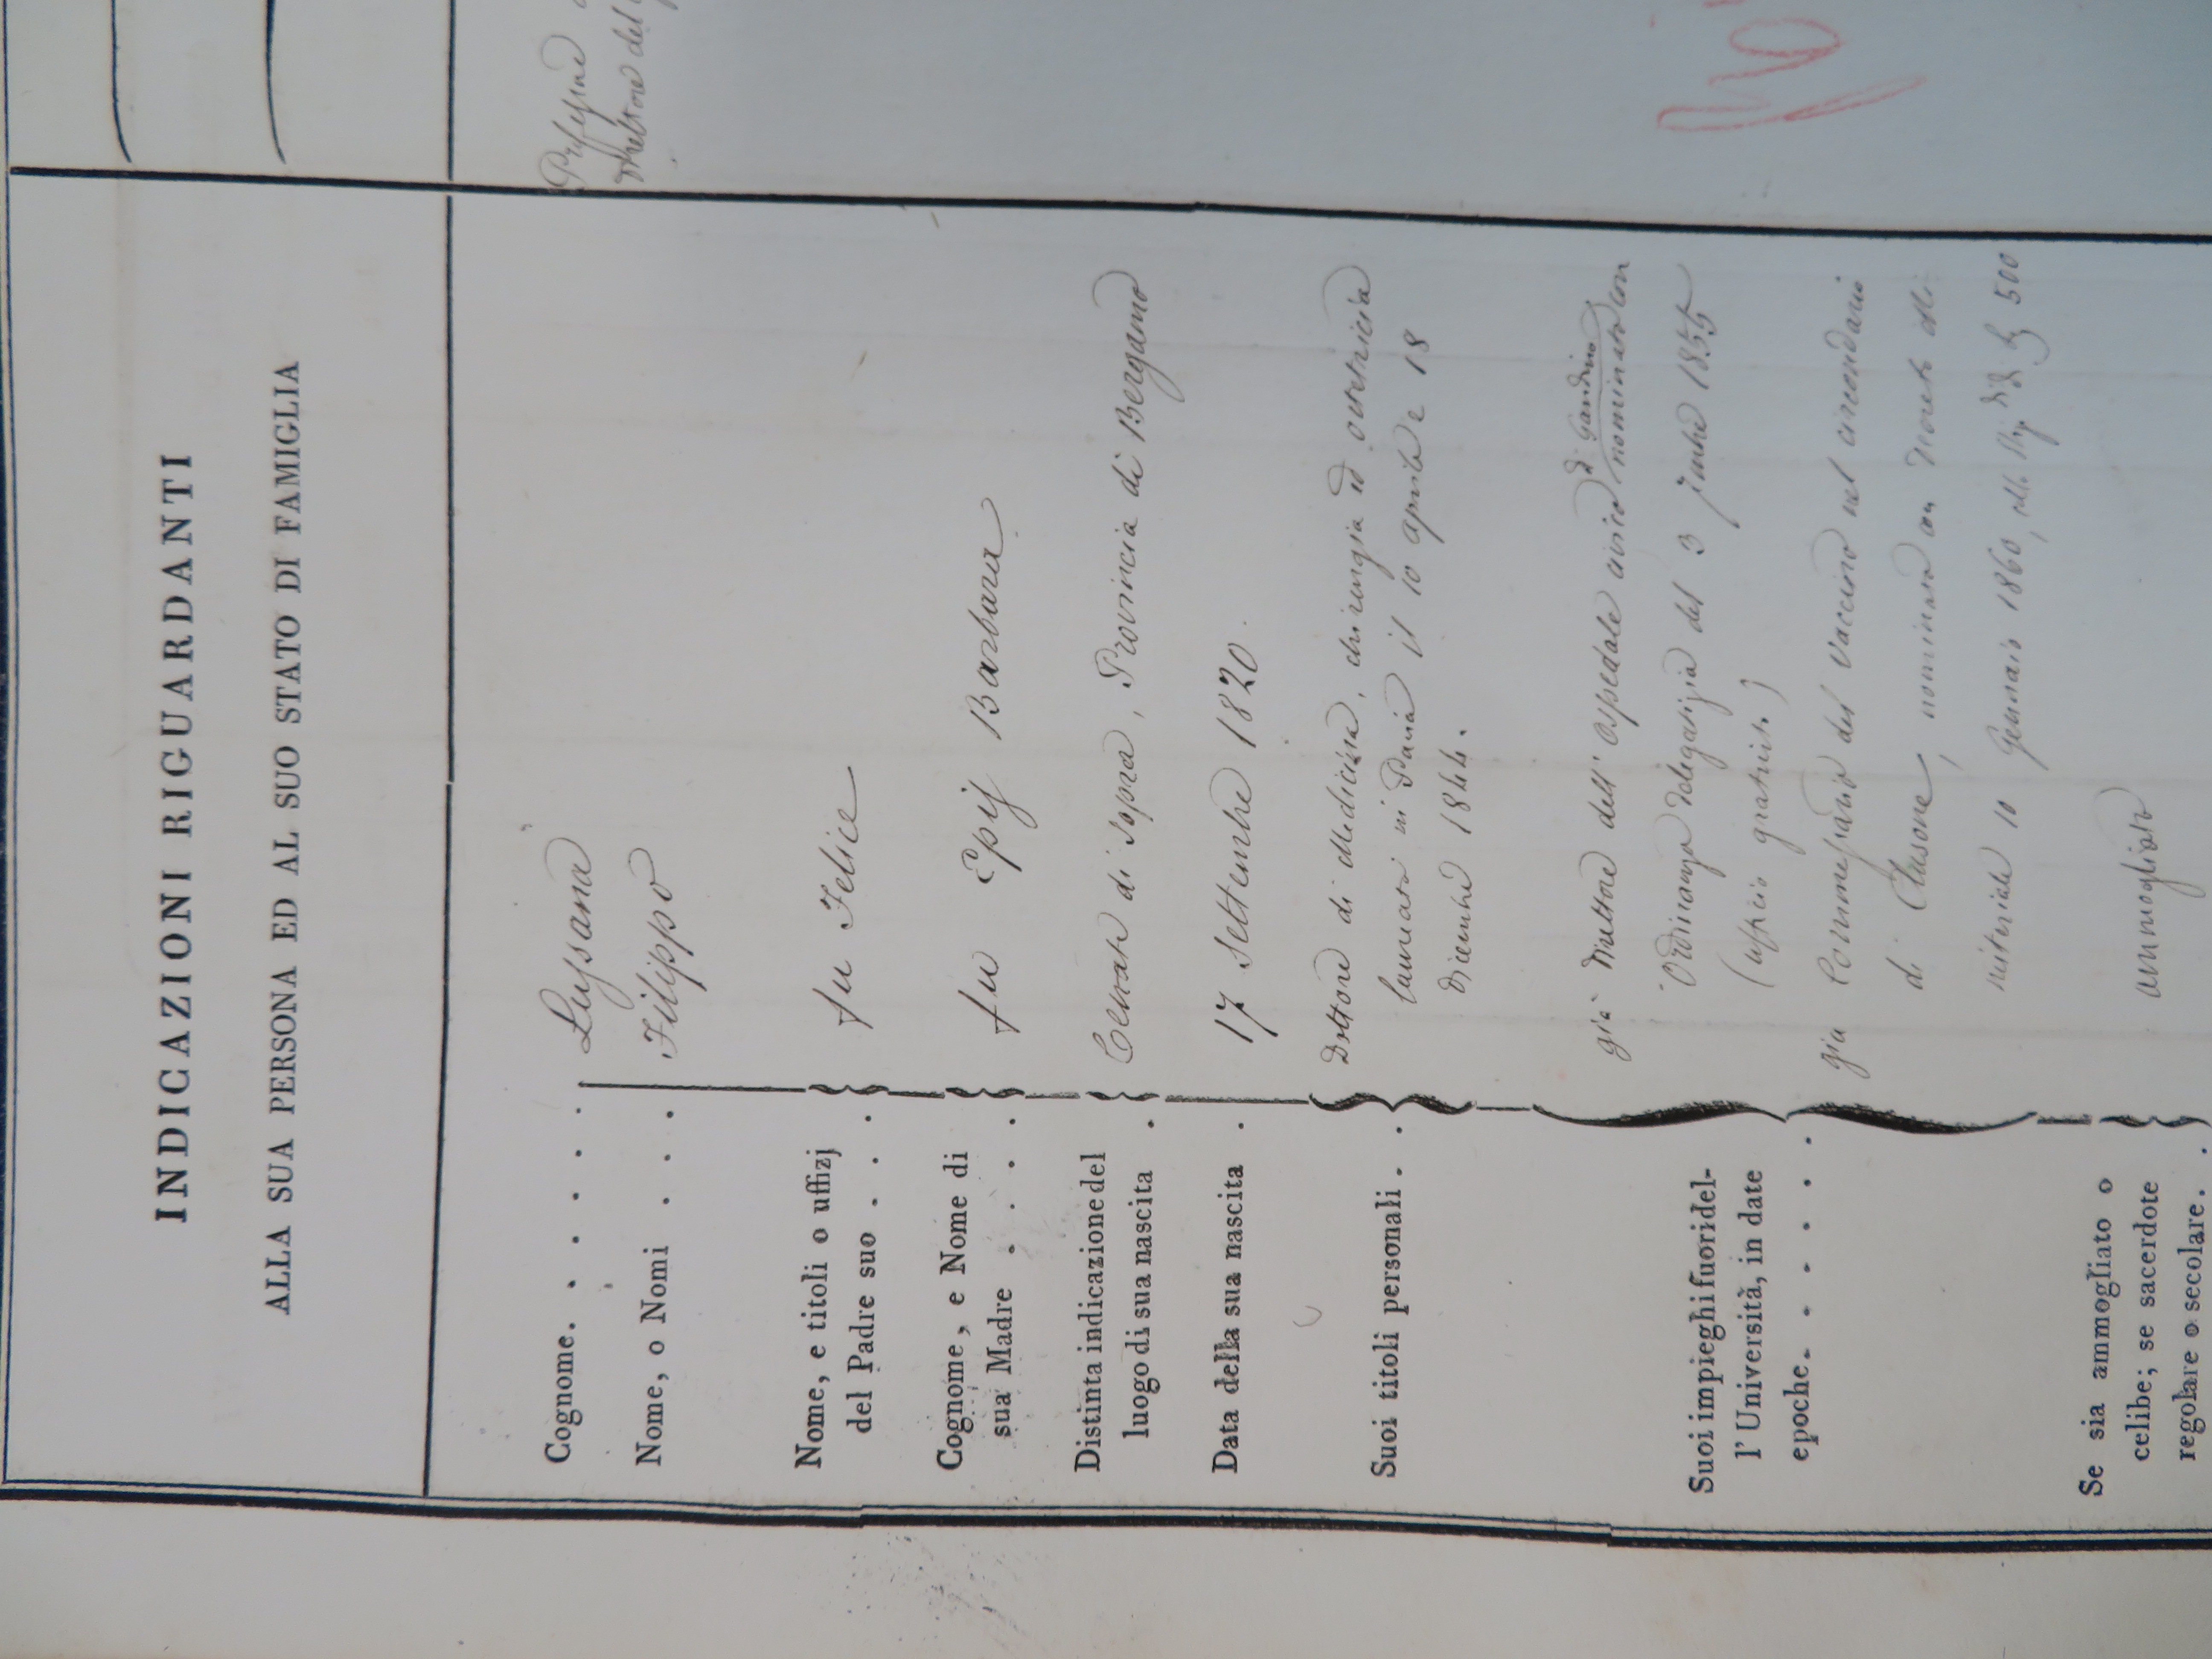 INDICAZIONI RIGUARDANTI
ALLA SUA PERSONA ED AL SUO STATO DI FAMIGLIA
Cognome. . . . . . Lussana
Nome, o Nomi . . . . Filippo
Nome, e titoli o uffizj
del Padre suo . . . fu Felice
Cognome, e Nome di
sua Madre . . . . fu Epis Barbara
Distinta indicazione del
luogo di sua nascita . Cenate di Sopra, Provincia di Bergamo
Data della sua nascita . 17 Settembre 1820.
Suoi titoli personali . . Dottore di Medicina, chirurgia ed ostetricia
laureato in Pavia il 10 aprile e 18
Dicembre 1844.
Suoi impieghi fuori del-
l'Università, in date
epoche. . . . . . .
di Gandino
già Direttore dell'Ospedale civico nominato con
Ordinanza delegatizia del 3 1855
(ufficio gratuito)
già Commessario del Vaccino nel circondario
di Clusone, nominato con Decreto Mi-
nisteriale 10 Gennaio 1860, 500
Se sia ammogliato o
celibe; se sacerdote
regolare o secolare. . ammogliato
Professore
Direttore del